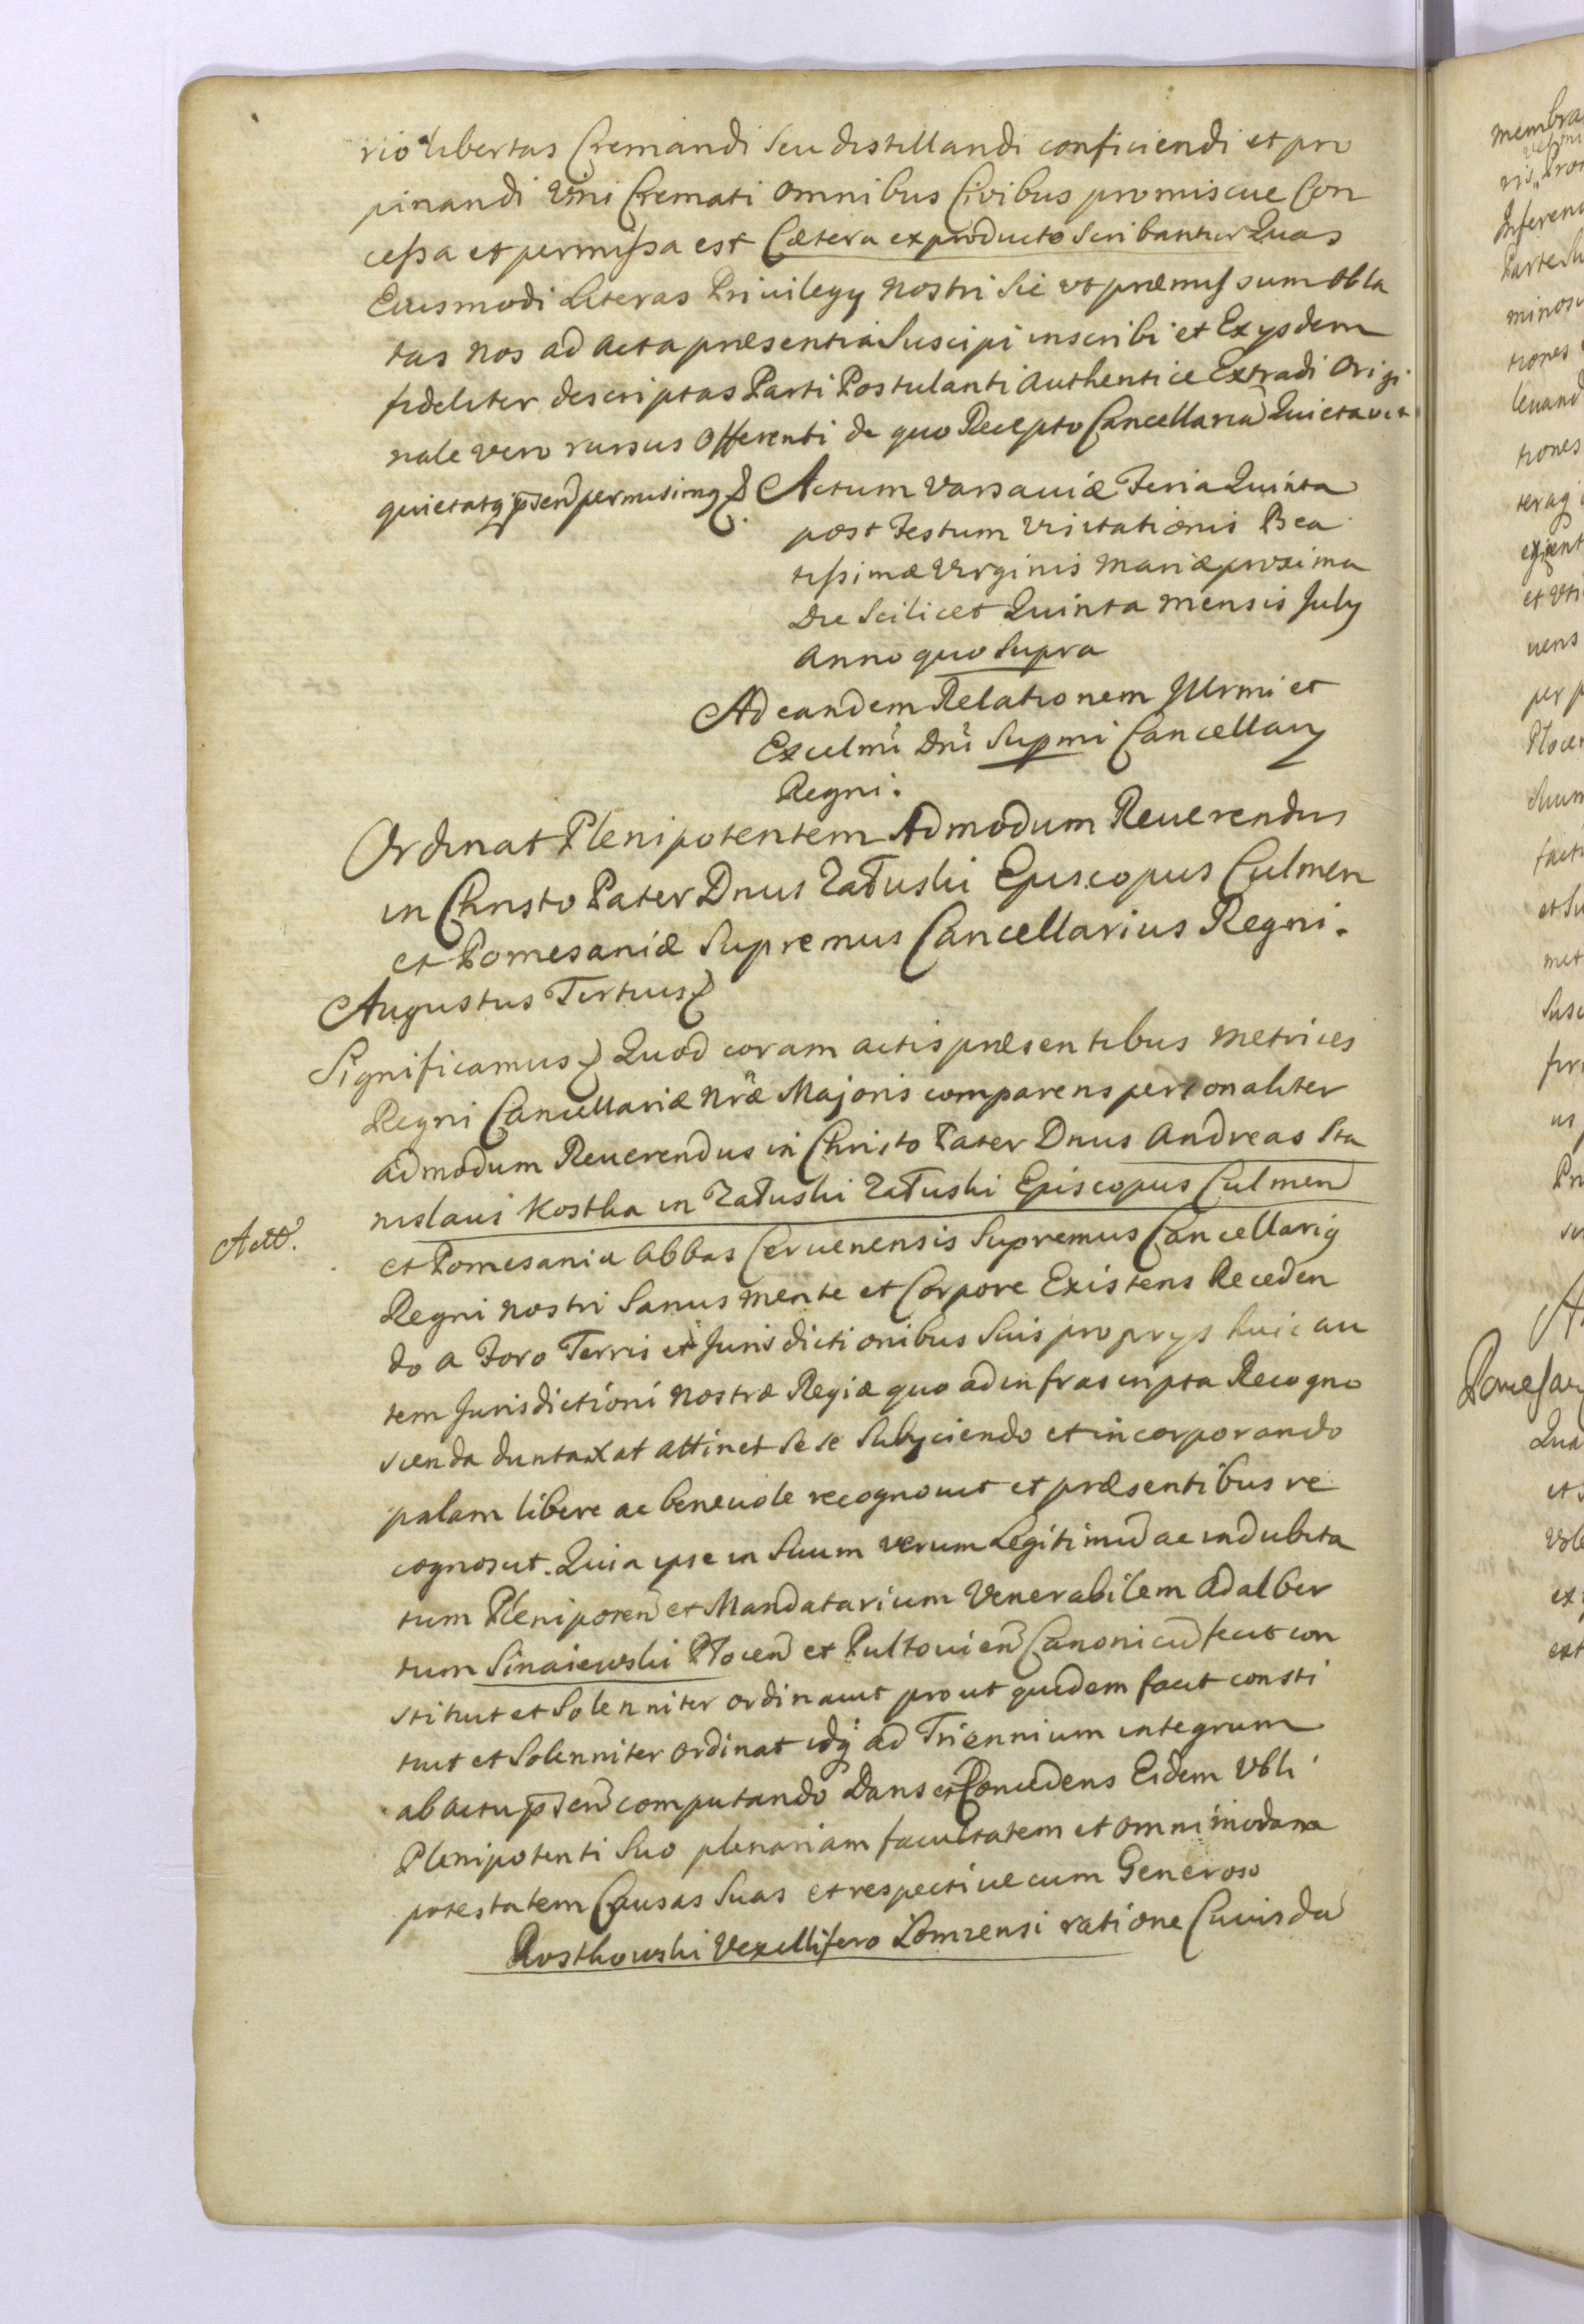 rio libertas Cremandi Seu distillandi conficiendi et pro
pinandi Vini Cremati omnibus Civibus promiscue Con
cessa et permissa est Cætera ex producto Scribantur Quas
Eiusmodi Literas Privilegy nostri Sic vt præmissum obla
tas nos ad acta præsentia Suscipi inscribi et Ex ysdem
fideliter descriptas Parti Postulanti authentice Extradi Origi
nale vero rursus Offerenti de quo Recepto Cancellariã Quietavit
quietatq p̃sen permisimq
Actum Varsaviæ Feria Quinta
post Festum Visitationis Bea
tissimæ Virginis Mariæ proxima
Die Scilicet Quinta mensis July
Anno quo Supra
Ad eandem Relationem Illrmi et
Excelmi Dni Supmi Cancellary
Regni.
Ordinat Plenipotentem Admodum Reuerendus
in Christo Pater Dnus Załuski Episcopus Culmen
et Pomesaniæ Supremus Cancellarius Regni.
Augustus Tertius
Significamus Quod coram actis præsentibus Metrices
Regni Cancellariæ Nræ Majoris comparens personaliter
admodum Reuerendus in Christo Pater Dnus Andreas Sta
nislaus Kostka in Załuski Załuski Episcopus Culmen
Act.
et Pomesania Abbas Cervenensis Supremus Cancellariq
Regni nostri Sanus mente et Corpore Existens Receden
do a Foro Terris et Jurisdictionibus Suis proprys huic au
tem Jurisdictioni nostræ Regiæ quo ad infrascripta Recogno
scenda duntaxat attinet Se se Subyciendo et incorporando
palam libere ac beneuole recognouit et præsentibus re
cognoscit. Quia ipse in Suum verum Legitimũ ac indubita
tum Plenipoten et Mandatarium Venerabilem Adalber
tum Sinaiewski Płocen et Pultouien Canonicũ fecit con
stituit et Solenniter ordinauit prout quidem facit consti
tuit et Solenniter ordinat idq ad Triennium integrum
ab actu p̃sen computando Dans et Concedens Eidem Vbli
Plenipotenti Suo plenariam facultatem et omnimodam
potestatem Causas Suas et respective cum Generoso
Rostkowski Vexillifero Lomzensi ratione Cuiusdã